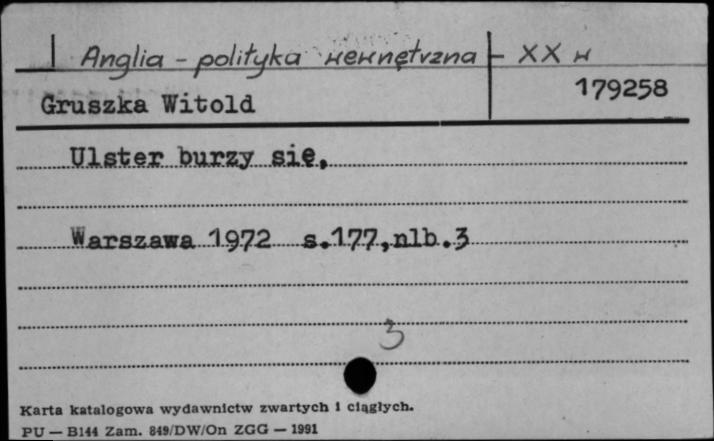 Anglia - polityka wewnętrzna - XX w
179258
Gruszka Witold
Ulster burzy się,
Warszawa 1972 s.177,nlb.3
3
Karta katalogowa wydawnictw zwartych i ciągłych.
PU — B144 Zam. 849/DW/On ZGG — 1991